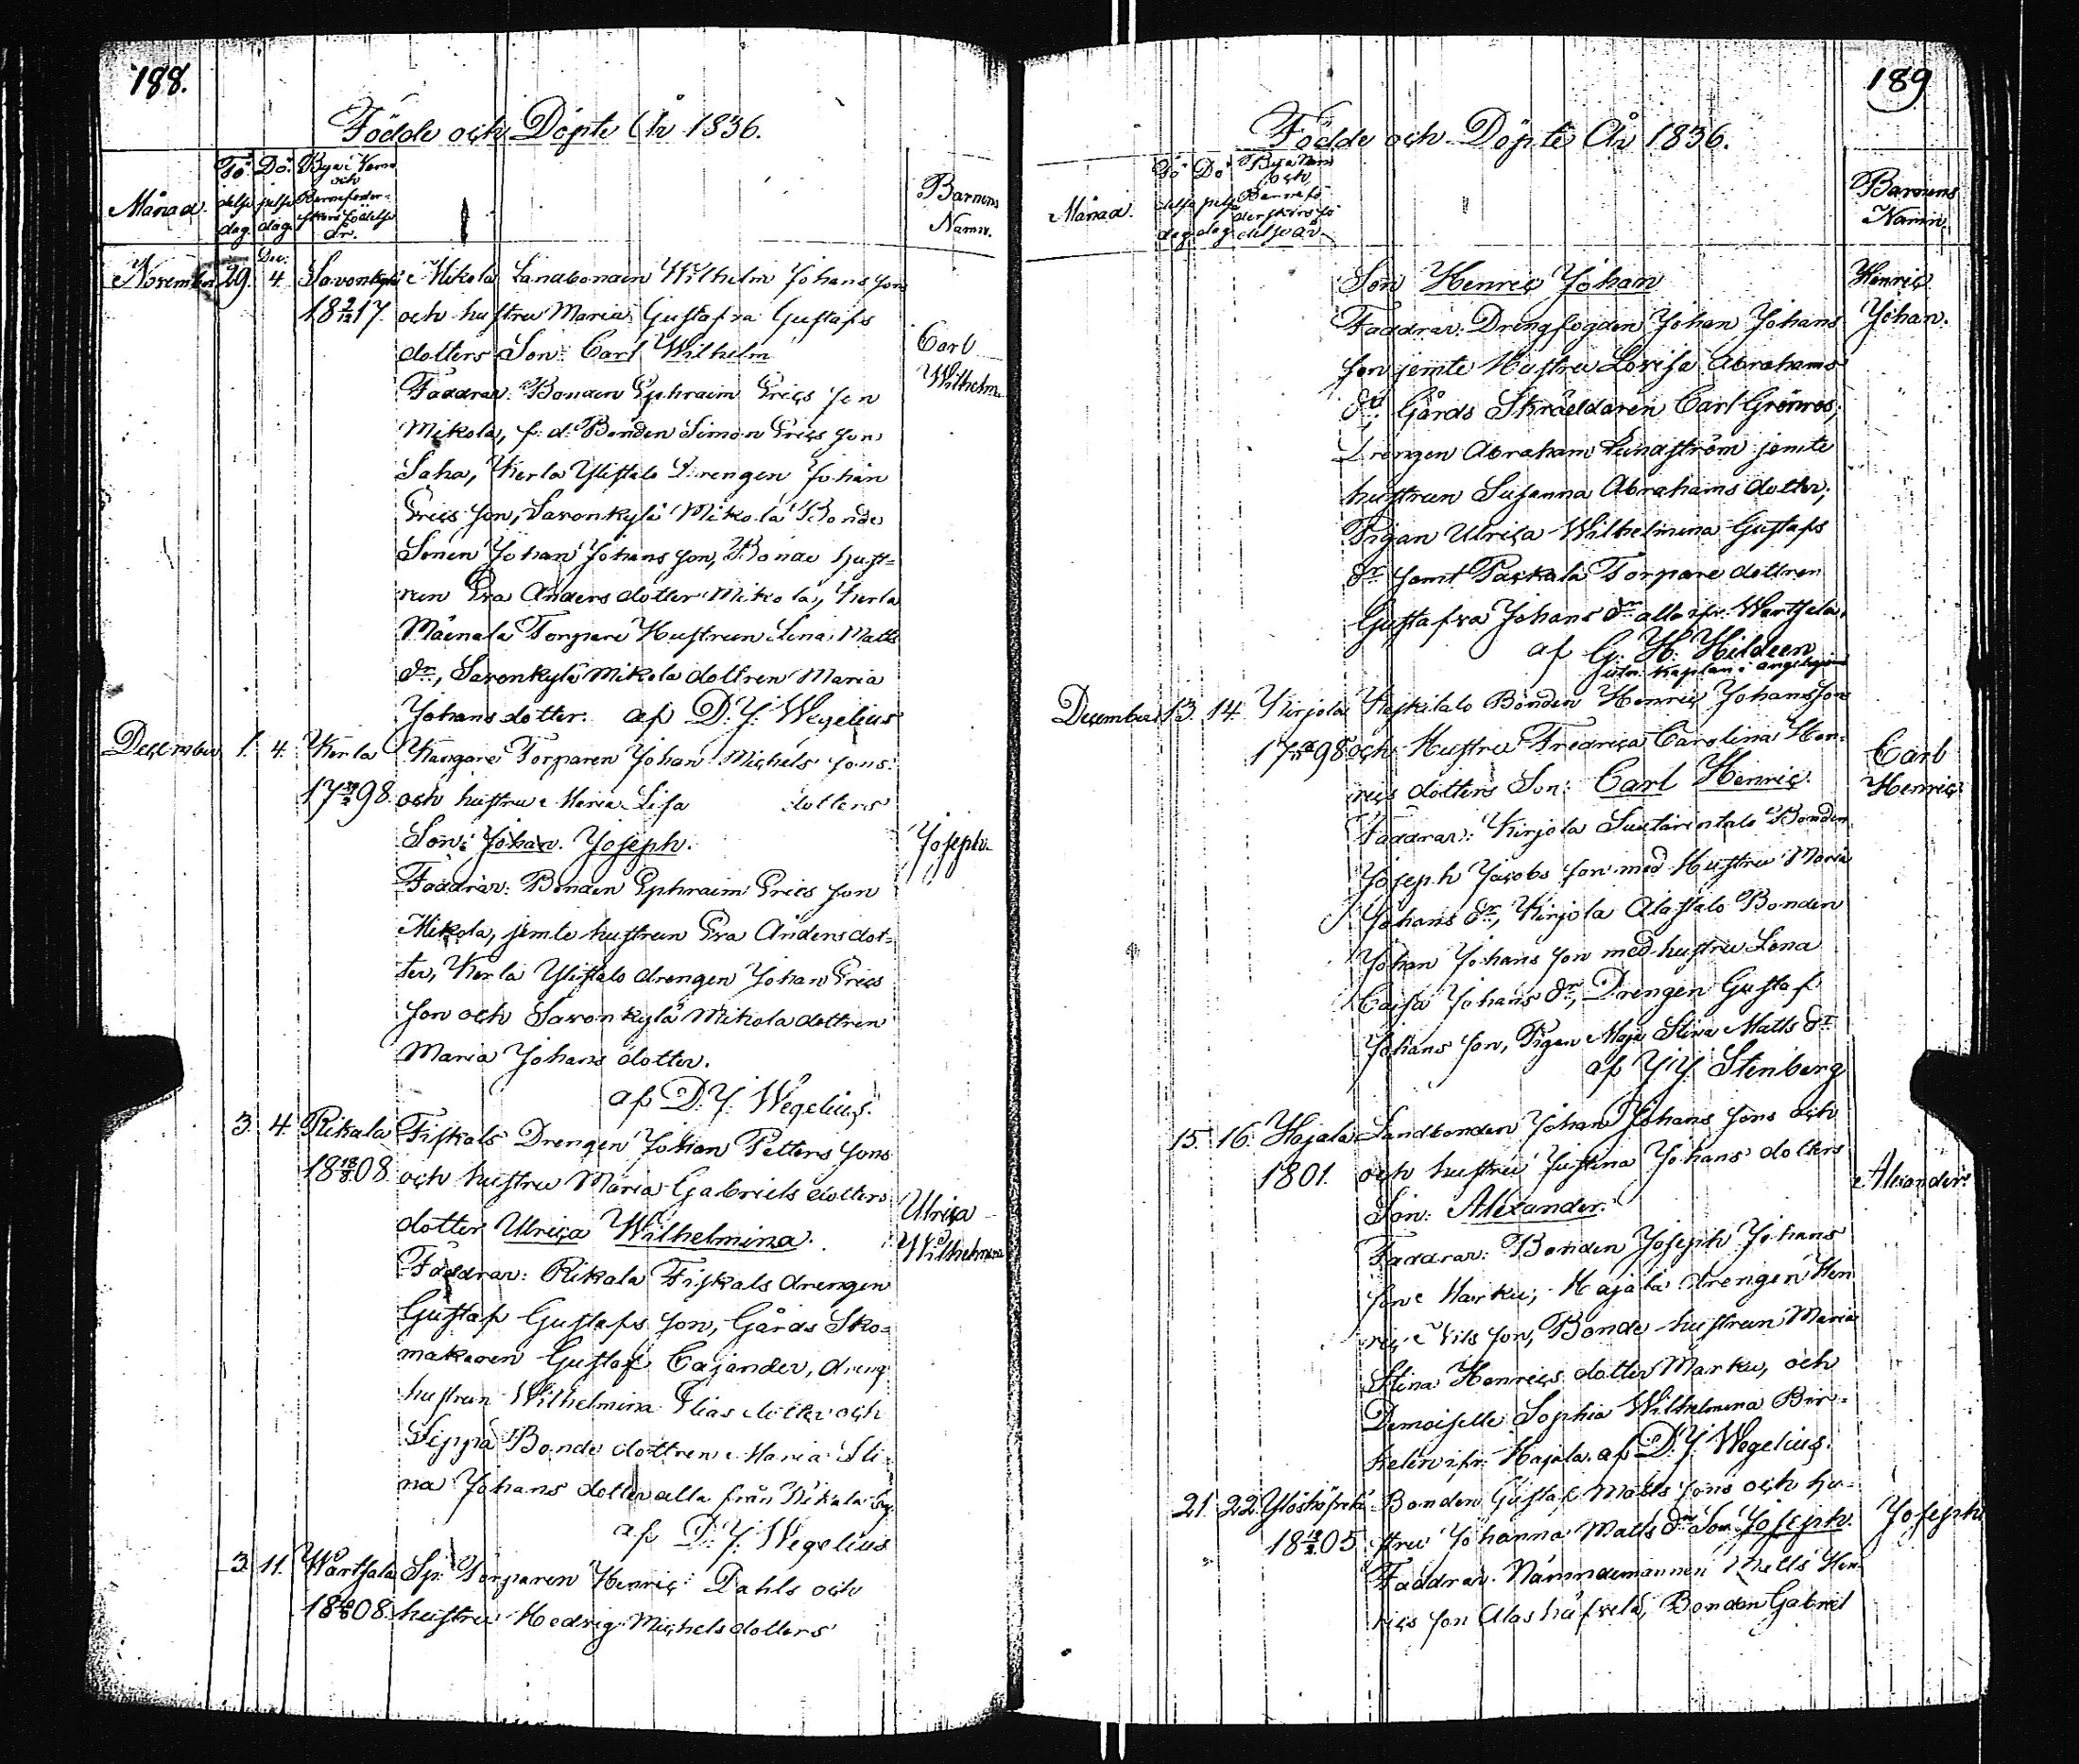 188.
Födde och Döpte År 1836.
Månad.
Fö
delse
dag.
Dö
pelse
dag.
Byars Namn
och
Barnaföder-
skans födelse
år.
Barnens
Namn.
Dec:
November 29. 4. Savonkylä Mikola Landbonden Wilhelm Johans son
18 17. och hustru Maria Gustafva Gustafs
dotters Son: Carl Wilhelm
Carl
Wilhelm
Faddrar: Bonden Ephraim Erics son
Mikola, f. d. Bonden Simon Erics son
Saha, Kerla Ylistalo Drengen Johan
Erics son, Savonkylä Mikola Bonde
Sonen Johan Johans son, Bonde hust-
run Eva Anders dotter Mikola, Kerla
Mäenala Torpare Hustrun Lena Matts
dr, Savonkylä Mikola dottren Maria
Johans dotter. af D. J. Wegelius
December 1. 4. Kerla Kangare Torparen Johan Michels sons
17 98. och hustru Maria Lisa dotters
Son: Johan Joseph.
Joseph.
Faddrar: Bonden Ephraim Erics son
Mikola, jemte hustrun Eva Anders dot-
ter, Kerla Ylistalo drengen Johan Erics
son och Savonkylä Mikola dottren
Maria Johans dotter.
af D. J. Wegelius.
3. 4. Rikala Fiskals Drengen Johan Petters sons
18 08. och hustru Maria Gabriels dotters
dotter Ulrica Wilhelmina.
Ulrica
Wilhelmina
Faddrar: Rikala Fiskals drengen
Gustaf Gustafs son, Gårds Sko-
makaren Gustaf Cajander, dreng
hustrun Wilhelmina Elias dotter och
Seppä Bonde dottren Maria Sti-
na Johans dotter alla från Rikala by.
af D. J. Wegelius
3. 11. Wartsala Sp: Torparen Henric Dahls och
18 08. hustru Hedvig Michels dotters
189
Födde och Döpte År 1836.
Månad.
Fö
delse
dag
Dö
pelse
dag
Byars Namn
och
Barnafö
derskans fö
delse år.
Barnens
Namn.
Son Henric Johan
Henric
Johan.
Faddrar: Drengfogden Johan Johans
son jemte Hustru Lovisa Abrahams
dr, Gårds Skräddaren Carl Grönros,
Drengen Abraham Lundström jemte
hustrun Susanna Abrahams dotter,
Pigan Ulrica Wilhelmina Gustafs
dr samt Packala Torpare dottren
Gustafva Johans dr alla ifr: Wartsala,
af G. H. Hildeen
December 13. 14. Kirjola Heskitalo Bonden Henric Johans son
17 98 och Hustru Fredrica Carolina Hen-
rics dotters Son: Carl Henric.
Carl
Henric
Faddrar: Kirjola Suutarintalo Bonden
Joseph Jacobs son med Hustru Maria
Johans dr, Kirjola Alastalo Bonden
Johan Johans son med hustru Lena
Caisa Johans dr, Drengen Gustaf
Johans son, Pigan Maja Stina Matts dr
af J. J. Stenberg
15. 16. Hajala Landbonden Johan Johans sons och
1801. och hustru Justina Johans dotters
Son: Alexander.
Alexander.
Faddrar: Bonden Joseph Johans
son Marku, Hajala drengen Hen
ric Nils son, Bonde hustrun Maria
Stina Henrics dotter Marku, och
Demoiselle Sophia Wilhelmina Bir-
kelin ifr: Hajala. af D. J. Wegelius.
21. 22. Bonden Gustaf Matts sons och hu-
18 05 stru Johanna Matts dr Son Joseph.
Joseph
Faddrar: Nämndemannen Matts Hen
rics son, Bonden Gabriel